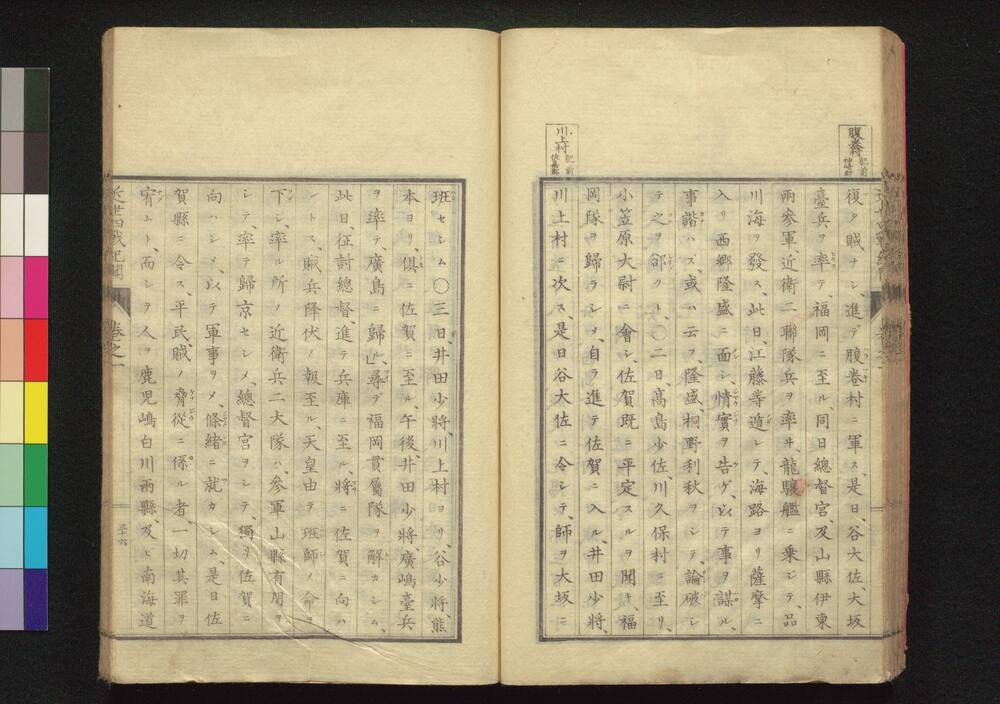 腹巻村
川上村
復ク賊ナシ、進デ腹巻村ニ軍ス、是日、谷大佐、大坂
臺兵ヲ率テ、福岡ニ至ル、同日總督宮、及山縣伊東
兩參軍近衛二聯隊兵ヲ率ヰ、龍驤艦ニ乗ジテ、品
川海ヲ發ス、此日、江藤等遁レテ、海路ヨリ薩摩ニ
入リ、西郷隆盛ニ面シ、情實ヲ告ゲ、以テ事ヲ謀ル、
事諧ハズ、或ハ云フ、隆盛、桐野利秋ヲシテ、論破シ
テ之ヲ郤クト、〇二日、髙島少佐、川久保村ニ至リ、
小笠原大尉ニ會シ、佐賀既ニ平定スルヲ聞キ、福
岡隊ヲ歸ラシメ、自ラ進テ佐賀ニ入ル、井田少將、
川上村ニ次ス、是日谷大佐ニ令シテ、師ヲ大坂ニ
班セシム、〇三日、井田少將川上村ヨリ、谷少將、熊
本ヨリ、俱ニ佐賀ニ至ル、午後、井田少將、廣嶋臺兵
ヲ率テ、廣島ニ歸ル、尋デ福岡貫屬隊ヲ解カシム、
此日、征討總督、進テ兵庫ニ至ル、將ニ佐賀ニ向ハ
ントス、賊兵降伏ノ報至ル、天皇由テ班師ノ命ヲ
下シ、率ル所ノ近衛兵二大隊ハ、參軍山縣有朋ヲ
シテ、率テ歸京セシメ、總督宮ヲシテ、獨リ佐賀ニ
向ハシメ、以テ軍事ヲメ、條緒ニ就カシム、是日佐
賀縣ニ令ス、平民賊ノ脅從ニ係ル者、一切其罪ヲ
宥ムト、而シテ人ヲ鹿児嶋白川兩縣、及ヒ南海道
近世四戰紀聞 卷之一 三十六